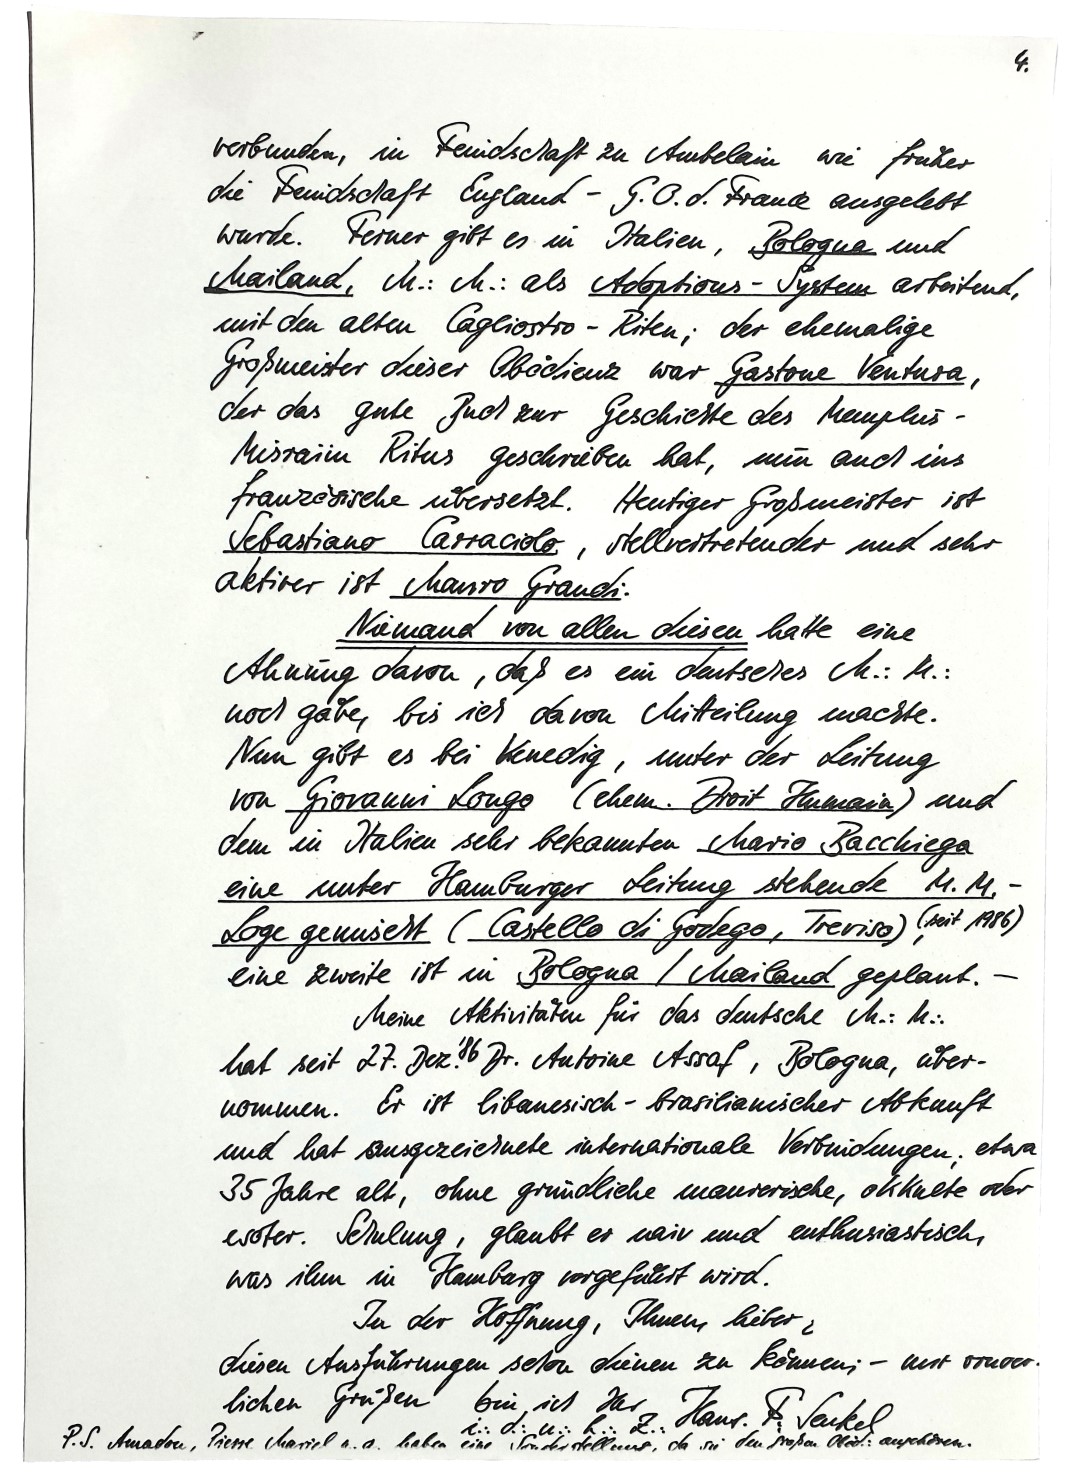 4.
verbunden, in Feindschaft zu Ambelain wie früher
die Feindschaft England - G.O.d. France ausgelebt
wurde. Ferner gibt es in Italien, Bologna und
Mailand, M.: M.: als Adoptions-System arbeitend,
mit den alten Cagliostro-Riten; der ehemalige
Großmeister dieser Obödienz war Gastone Ventura,
der das gute Buch zur Geschichte des Memphis-
Misraim Ritus geschrieben hat, nun auch ins
französische übersetzt. Heutiger Großmeister ist
Sebastiano Carraciolo, stellvertretender und sehr
aktiver ist Mauro Grandi.
Niemand von allen diesen hatte eine
Ahnung davon, daß es ein deutsches M.: M.:
noch gäbe, bis ich davon Mitteilung machte.
Nun gibt es bei Venedig, unter der Leitung
von Giovanni Longo (ehem. Droit Humain) und
dem in Italien sehr bekannten Mario Bacchiega
eine unter Hamburger Leitung stehende M.M.-
Loge gemischt (Castello di Godego, Treviso) (seit 1986)
eine zweite ist in Bologna / Mailand geplant. -
Meine Aktivitäten für das deutsche M.: M.:
hat seit 27. Dez. '86 Dr. Antoine Assaf, Bologna, über-
nommen. Er ist libanesisch-brasilianischer Abkunft
und hat ausgezeichnete internationale Verbindungen, etwa
35 Jahre alt, ohne gründliche maurerische, okkulte oder
esoter. Schulung, glaubt er naiv und enthusiastisch,
was ihm in Hamburg vorgeführt wird.
In der Hoffnung, Ihnen, lieber,
diesen Ausführungen schon dienen zu können; - mit
lichen Grüßen bin ich Ihr Hans. F.
i.: d.: u.: h.: Z.:
P.S. Amadou, Pierre Mariel u.a. haben eine Sonderstellung, da sie den großen Oböd.: angehören.